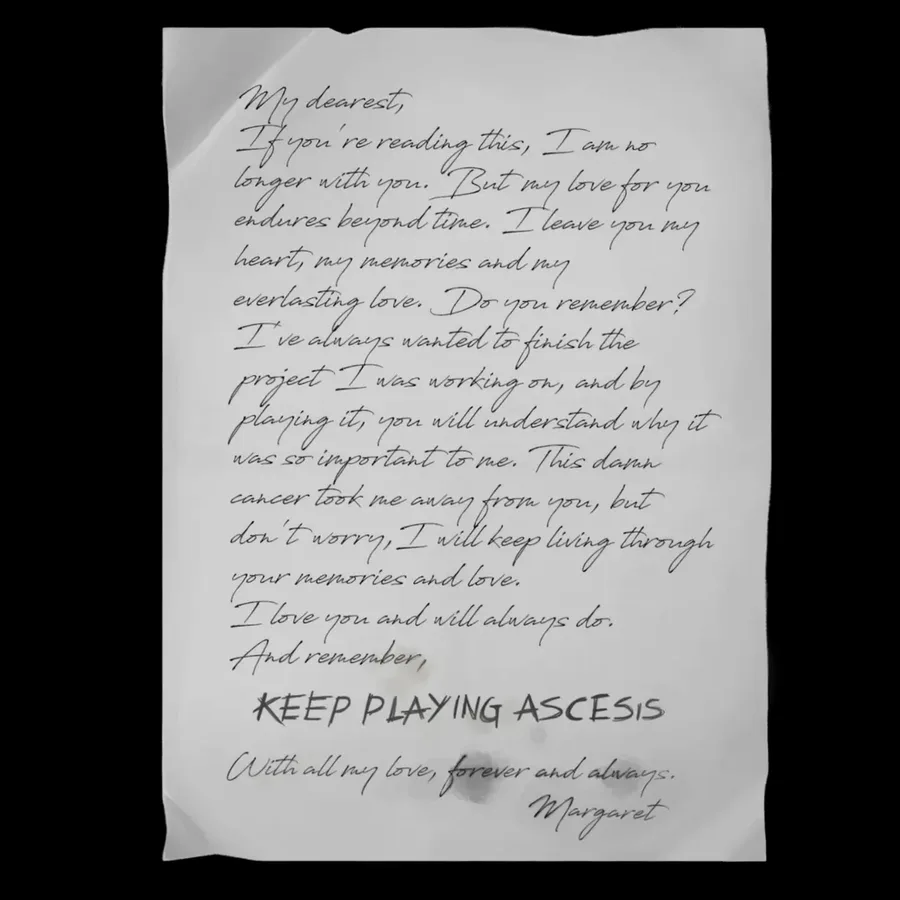 My dearest,
If you're reading this, I am no
longer with you. But my love for you
endures beyond time. I leave you my
heart, my memories and my
everlasting love. Do you remember?
I've always wanted to finish the
project I was working on, and by
playing it, you will understand why it
was so important to me. This damn
cancer took me away from you, but
don't worry, I will keep living through
your memories and love.
I love you and will always do.
And remember,
KEEP PLAYING ASCESIS
With all my love, forever and always.
Margaret